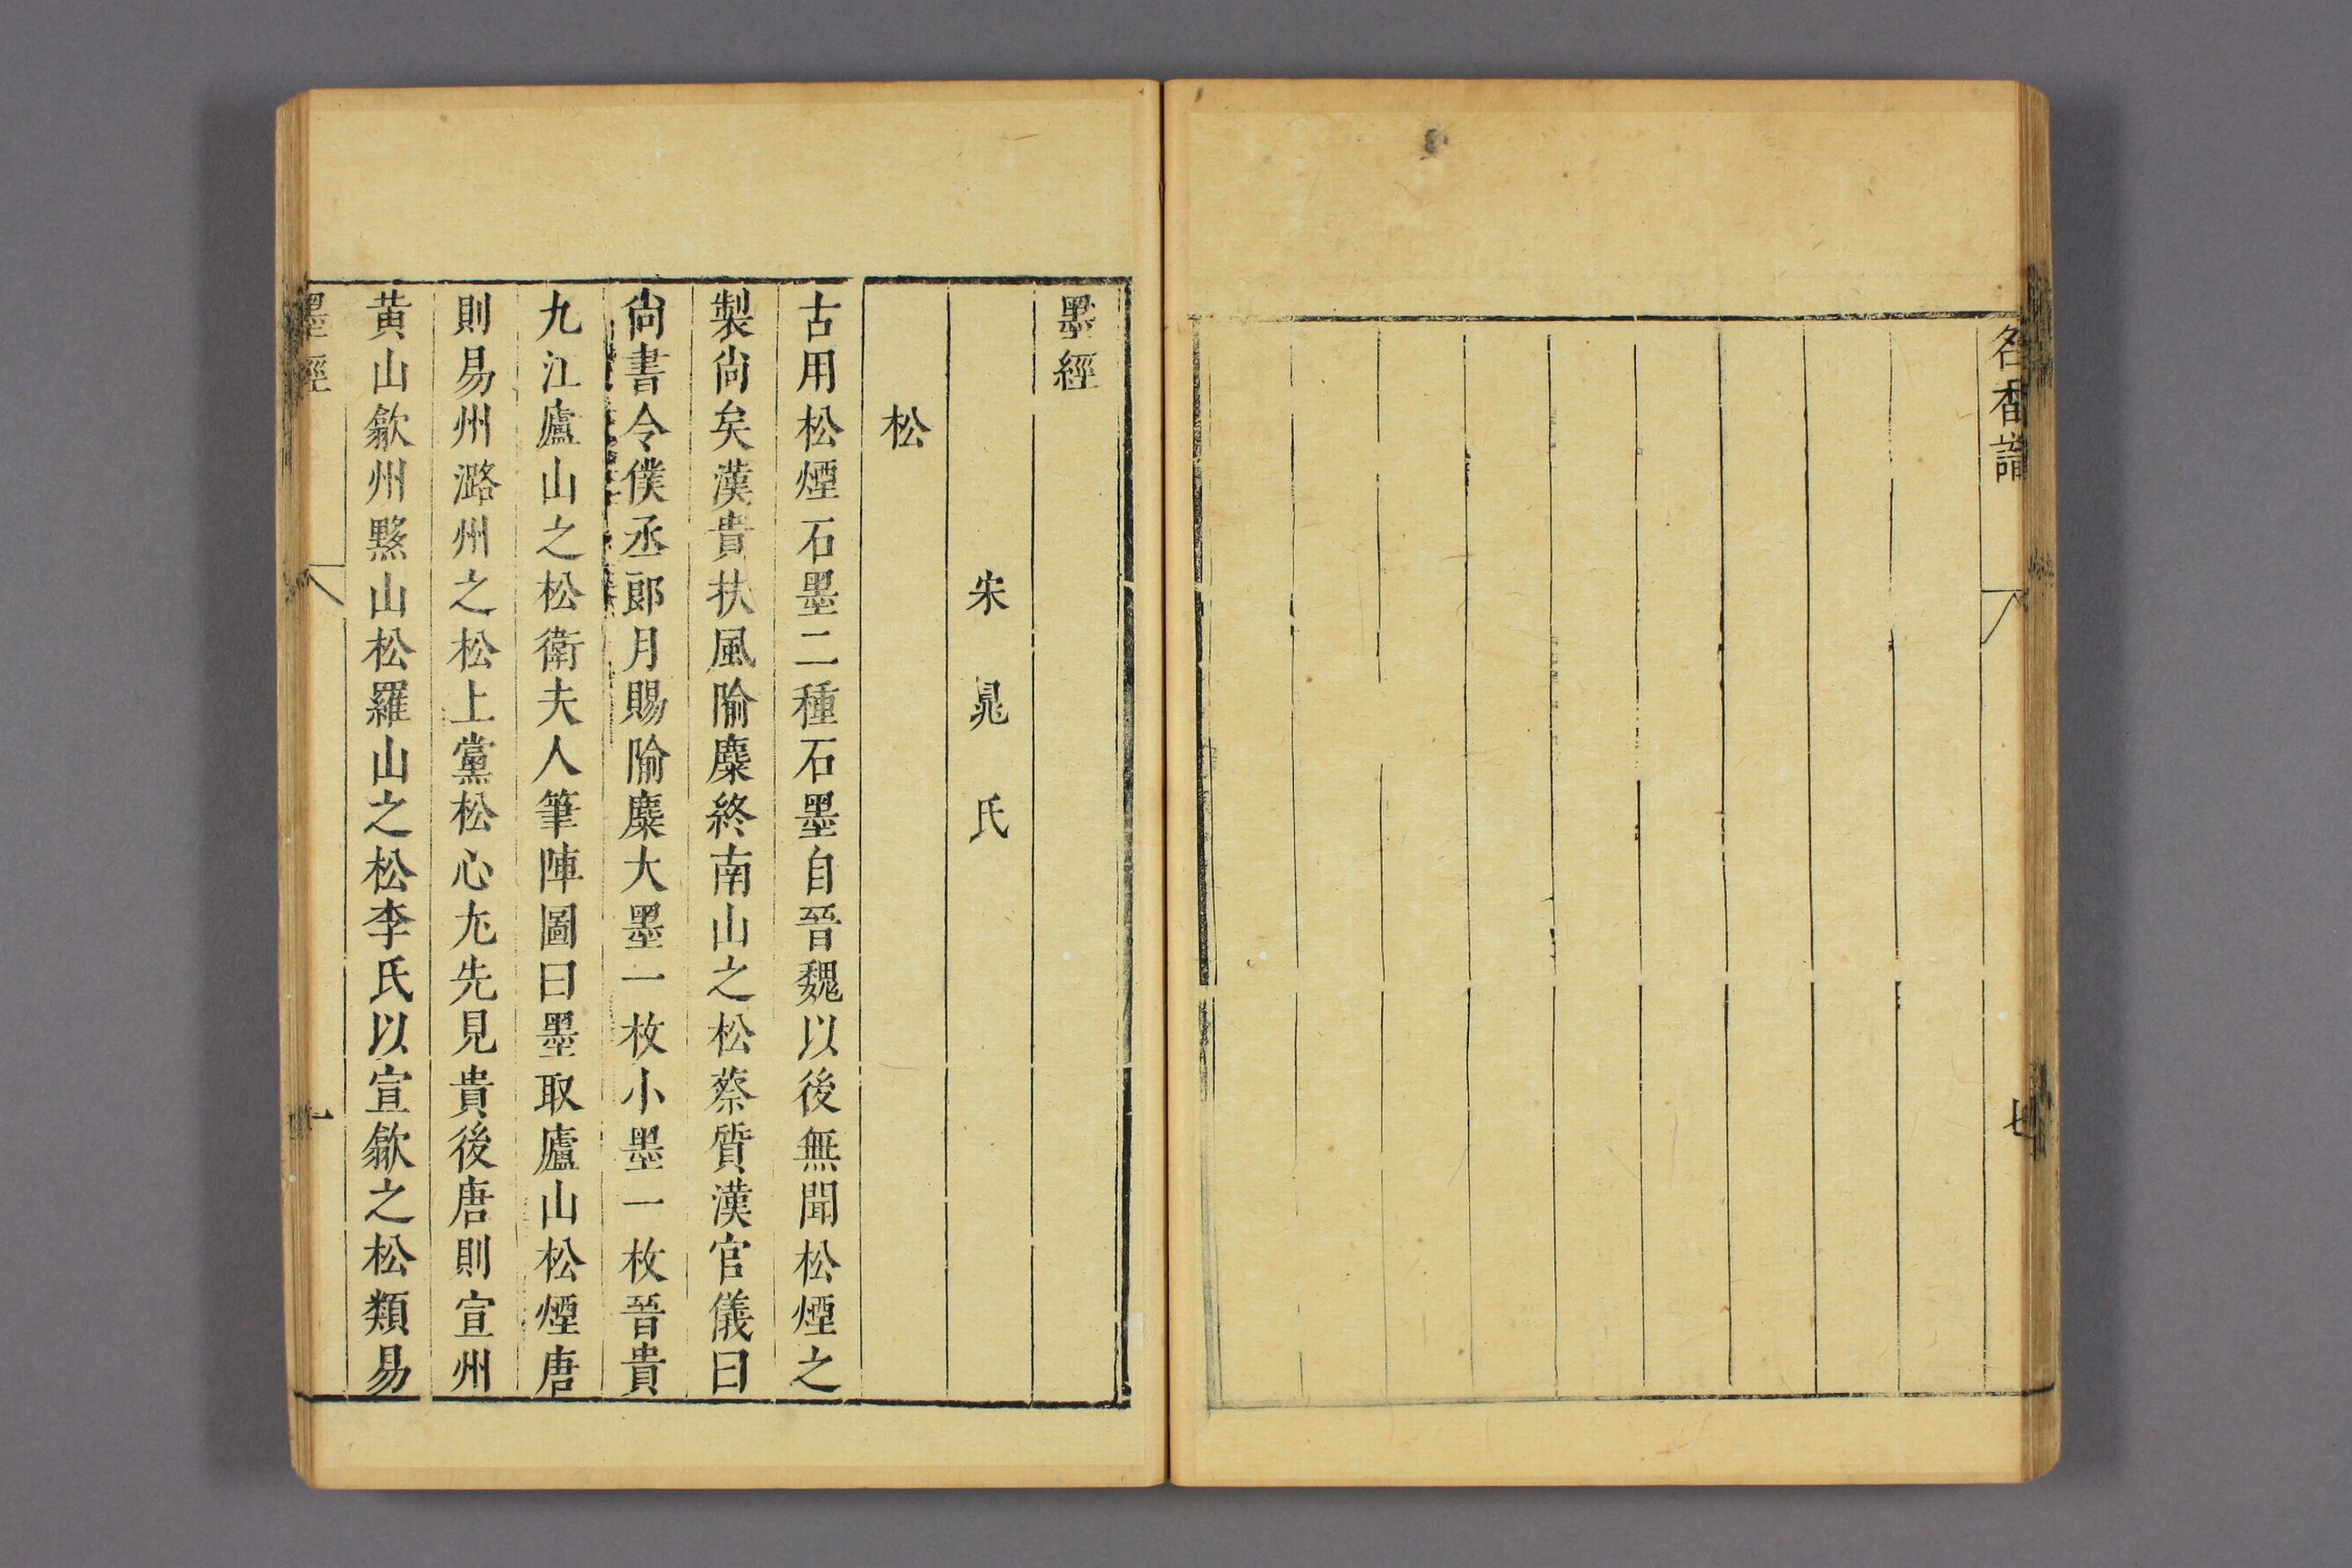 名香譜
七
墨經
宋晁氏
松
古用松煙石墨二種石墨自晉魏以後無聞松煙之
製尚矣漢貴扶風隃麋終南山之松蔡質漢官儀曰
尚書令僕丞郎月賜隃麋大墨一枚小墨一枚晉貴
九江廬山之松衛夫人筆陣圖曰墨取廬山松煙唐
則易州潞州之松上黨松心尤先見貴後唐則宣州
黃山歙州黟山松羅山之松李氏以宣歙之松類易
墨經
一